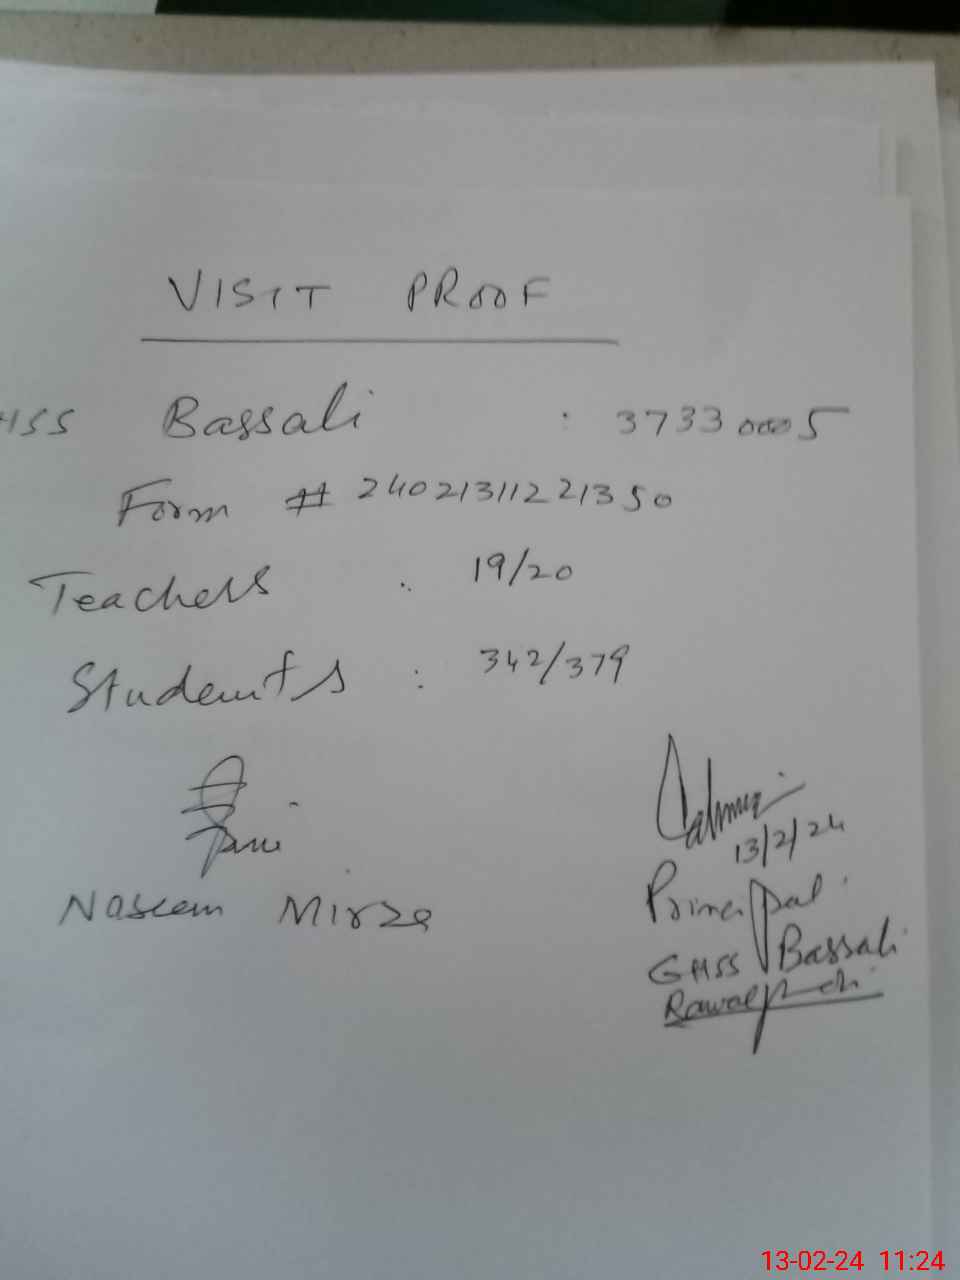 VISIT PROOF
HSS Bassali : 37330005
Form # 24021311221350
Teachers : 19/20
Students : 342/379
13/2/24
Naseem Mirza
Principal
GHSS Bassali
Rawalpindi
13-02-24 11:24